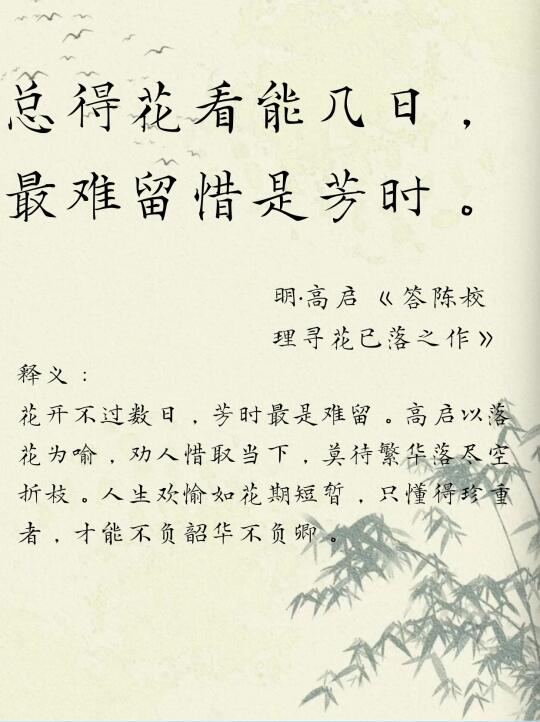 总得花看能几日，
最难留惜是芳时。
明·高启《答陈校
理寻花已落之作》
释义：
花开不过数日，芳时最是难留。高启以落
花为喻，劝人惜取当下，莫待繁华落尽空
折枝。人生欢愉如花期短暂，只懂得珍重
者，才能不负韶华不负卿。